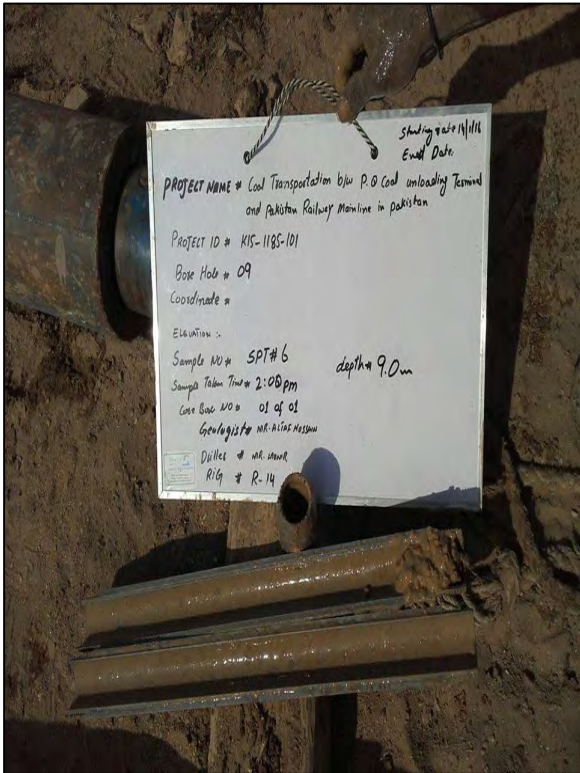 Starting Date 14/1/16
End Date.
PROJECT NAME # Coal Transportation b/w P.Q Coal unloading Terminal
and Pakistan Railway Mainline in pakistan
PROJECT ID # K15-1185-101
Bore Hole # 09
Coordinate #
ELEVATION :-
Sample NO # SPT#6
depth # 9.0m
Sample Taken Time # 2:00pm
Core Box NO # 01 of 01
Geologist # MR. ALTAF HUSSAIN
Driller # MR.
RIG # R-14